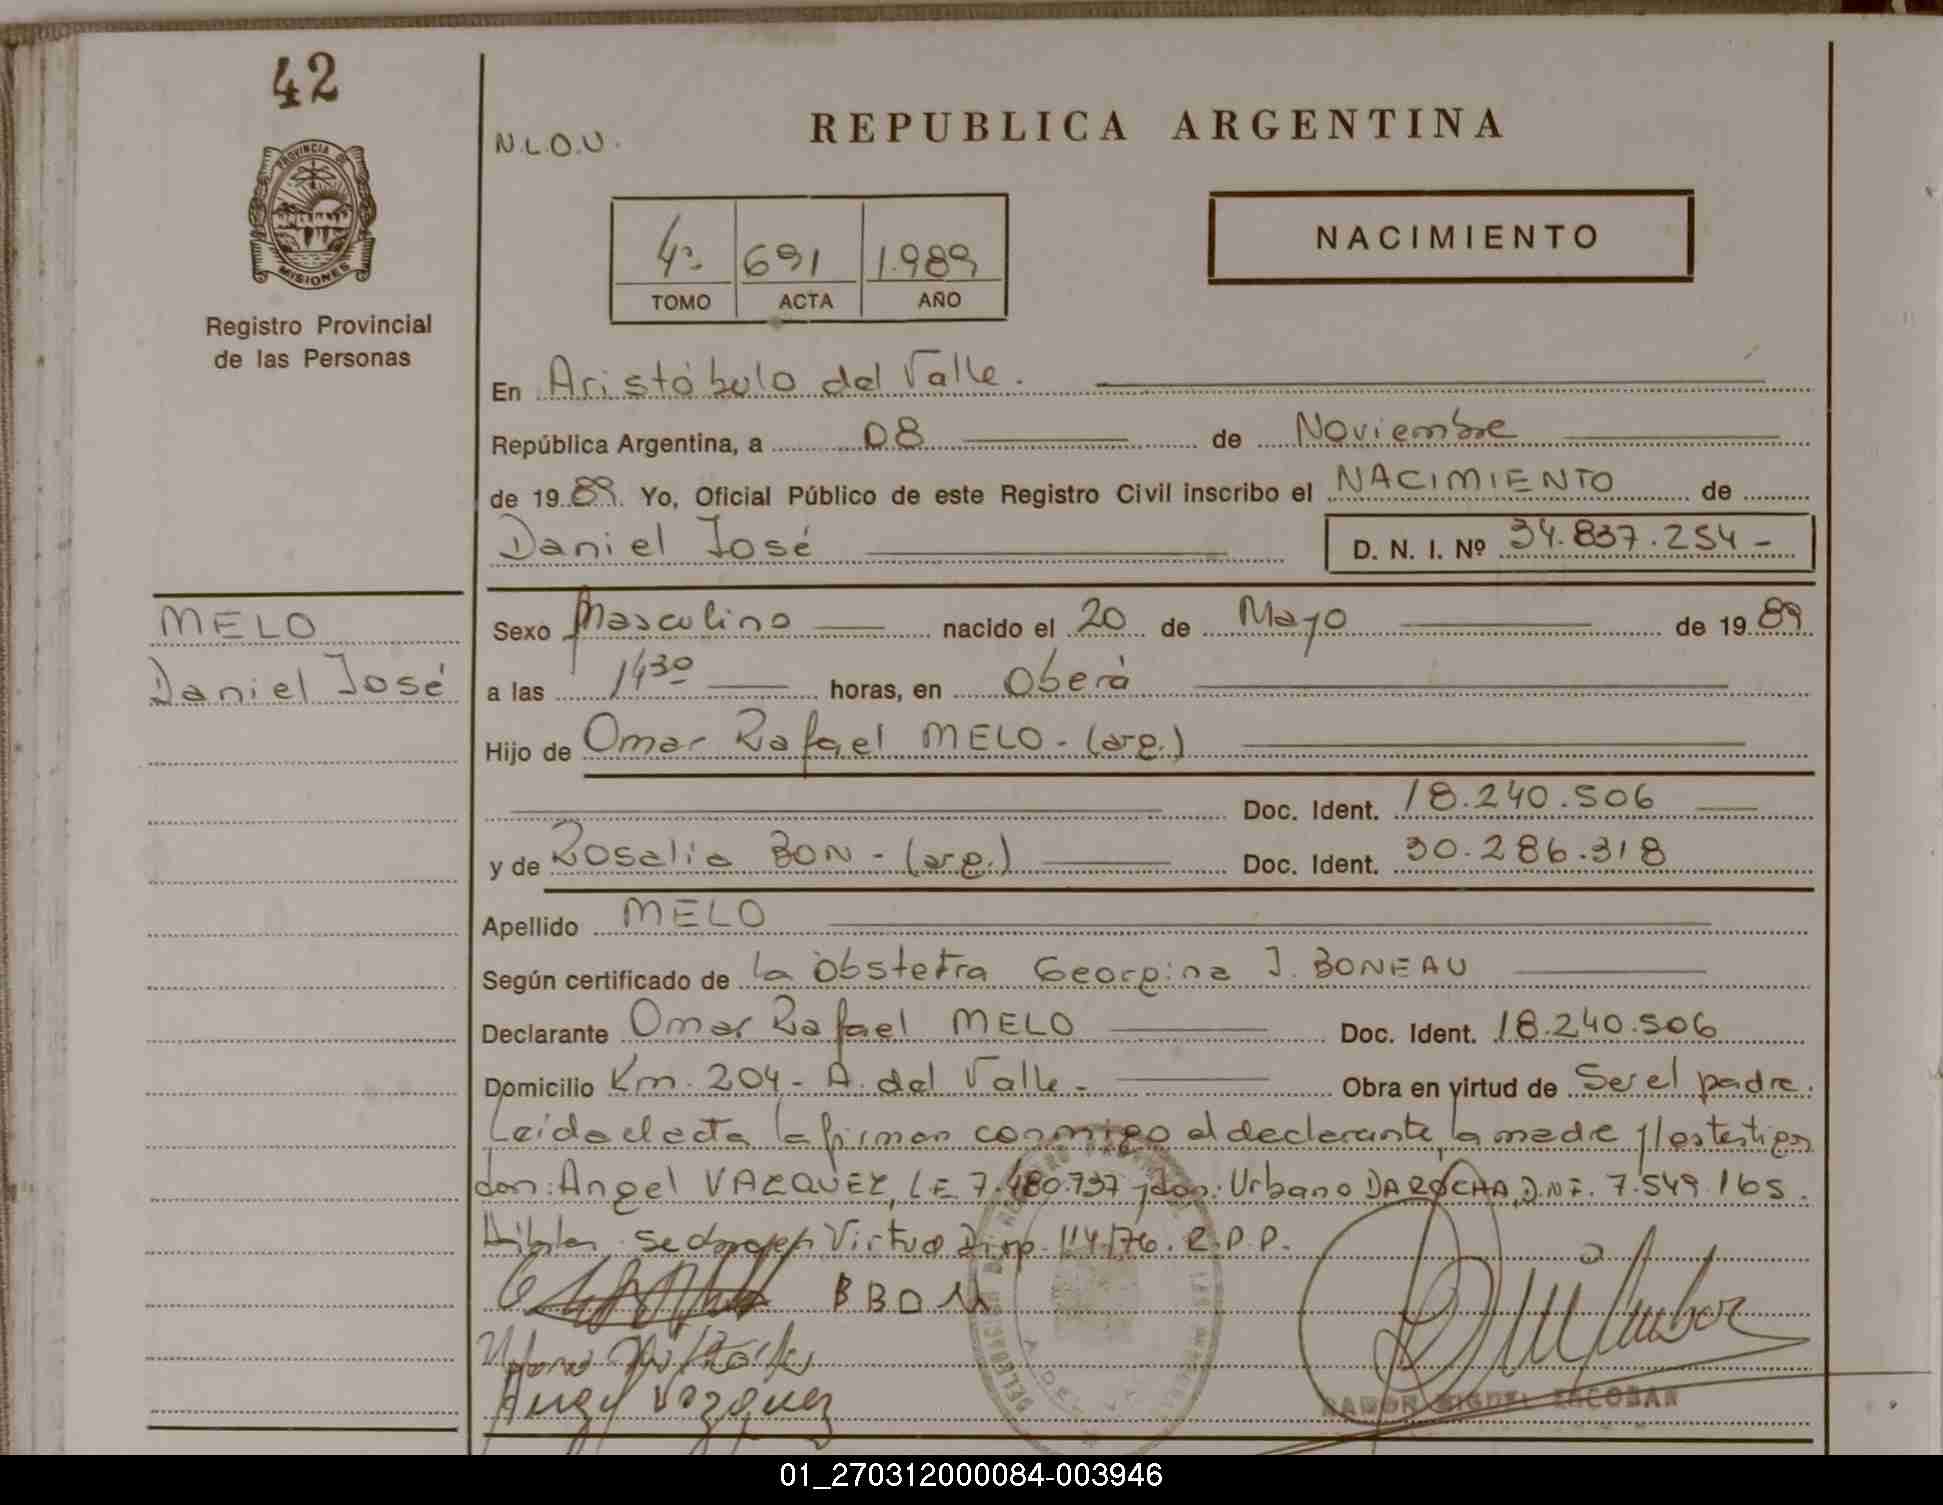 42
PROVINCIA DE
MISIONES
Registro Provincial
de las Personas
N.L.O.U.
REPUBLICA ARGENTINA
4º 691 1.989
TOMO ACTA AÑO
NACIMIENTO
En Aristóbulo del Valle.
República Argentina, a 08 de Noviembre
de 1989. Yo, Oficial Público de este Registro Civil inscribo el NACIMIENTO de
Daniel José D. N. I. Nº 34.837.254-
MELO
Daniel José
Sexo Masculino nacido el 20 de Mayo de 1989
a las 1430 horas, en Oberá
Hijo de Omar Rafael MELO - (arg.)
Doc. Ident. 18.240.506
y de Rosalia BON - (arg.) Doc. Ident. 30.286.318
Apellido MELO
Según certificado de la obstetra Georgina J. BONEAU
Declarante Omar Rafael MELO Doc. Ident. 18.240.506
Domicilio Km. 204 - A. del Valle - Obra en virtud de Ser el padre.
Leída el acta la firman conmigo el declarante, la madre y los testigos
don: Angel VAZQUEZ, LE 7.480.737 y don: Urbano DA ROCHA, D.N.I. 7.549.165.
Virtud Disp. 114/76. R.P.P.
BBON
Angel Vazquez
RAMON MIGUEL ESCOBAR
01_270312000084-003946